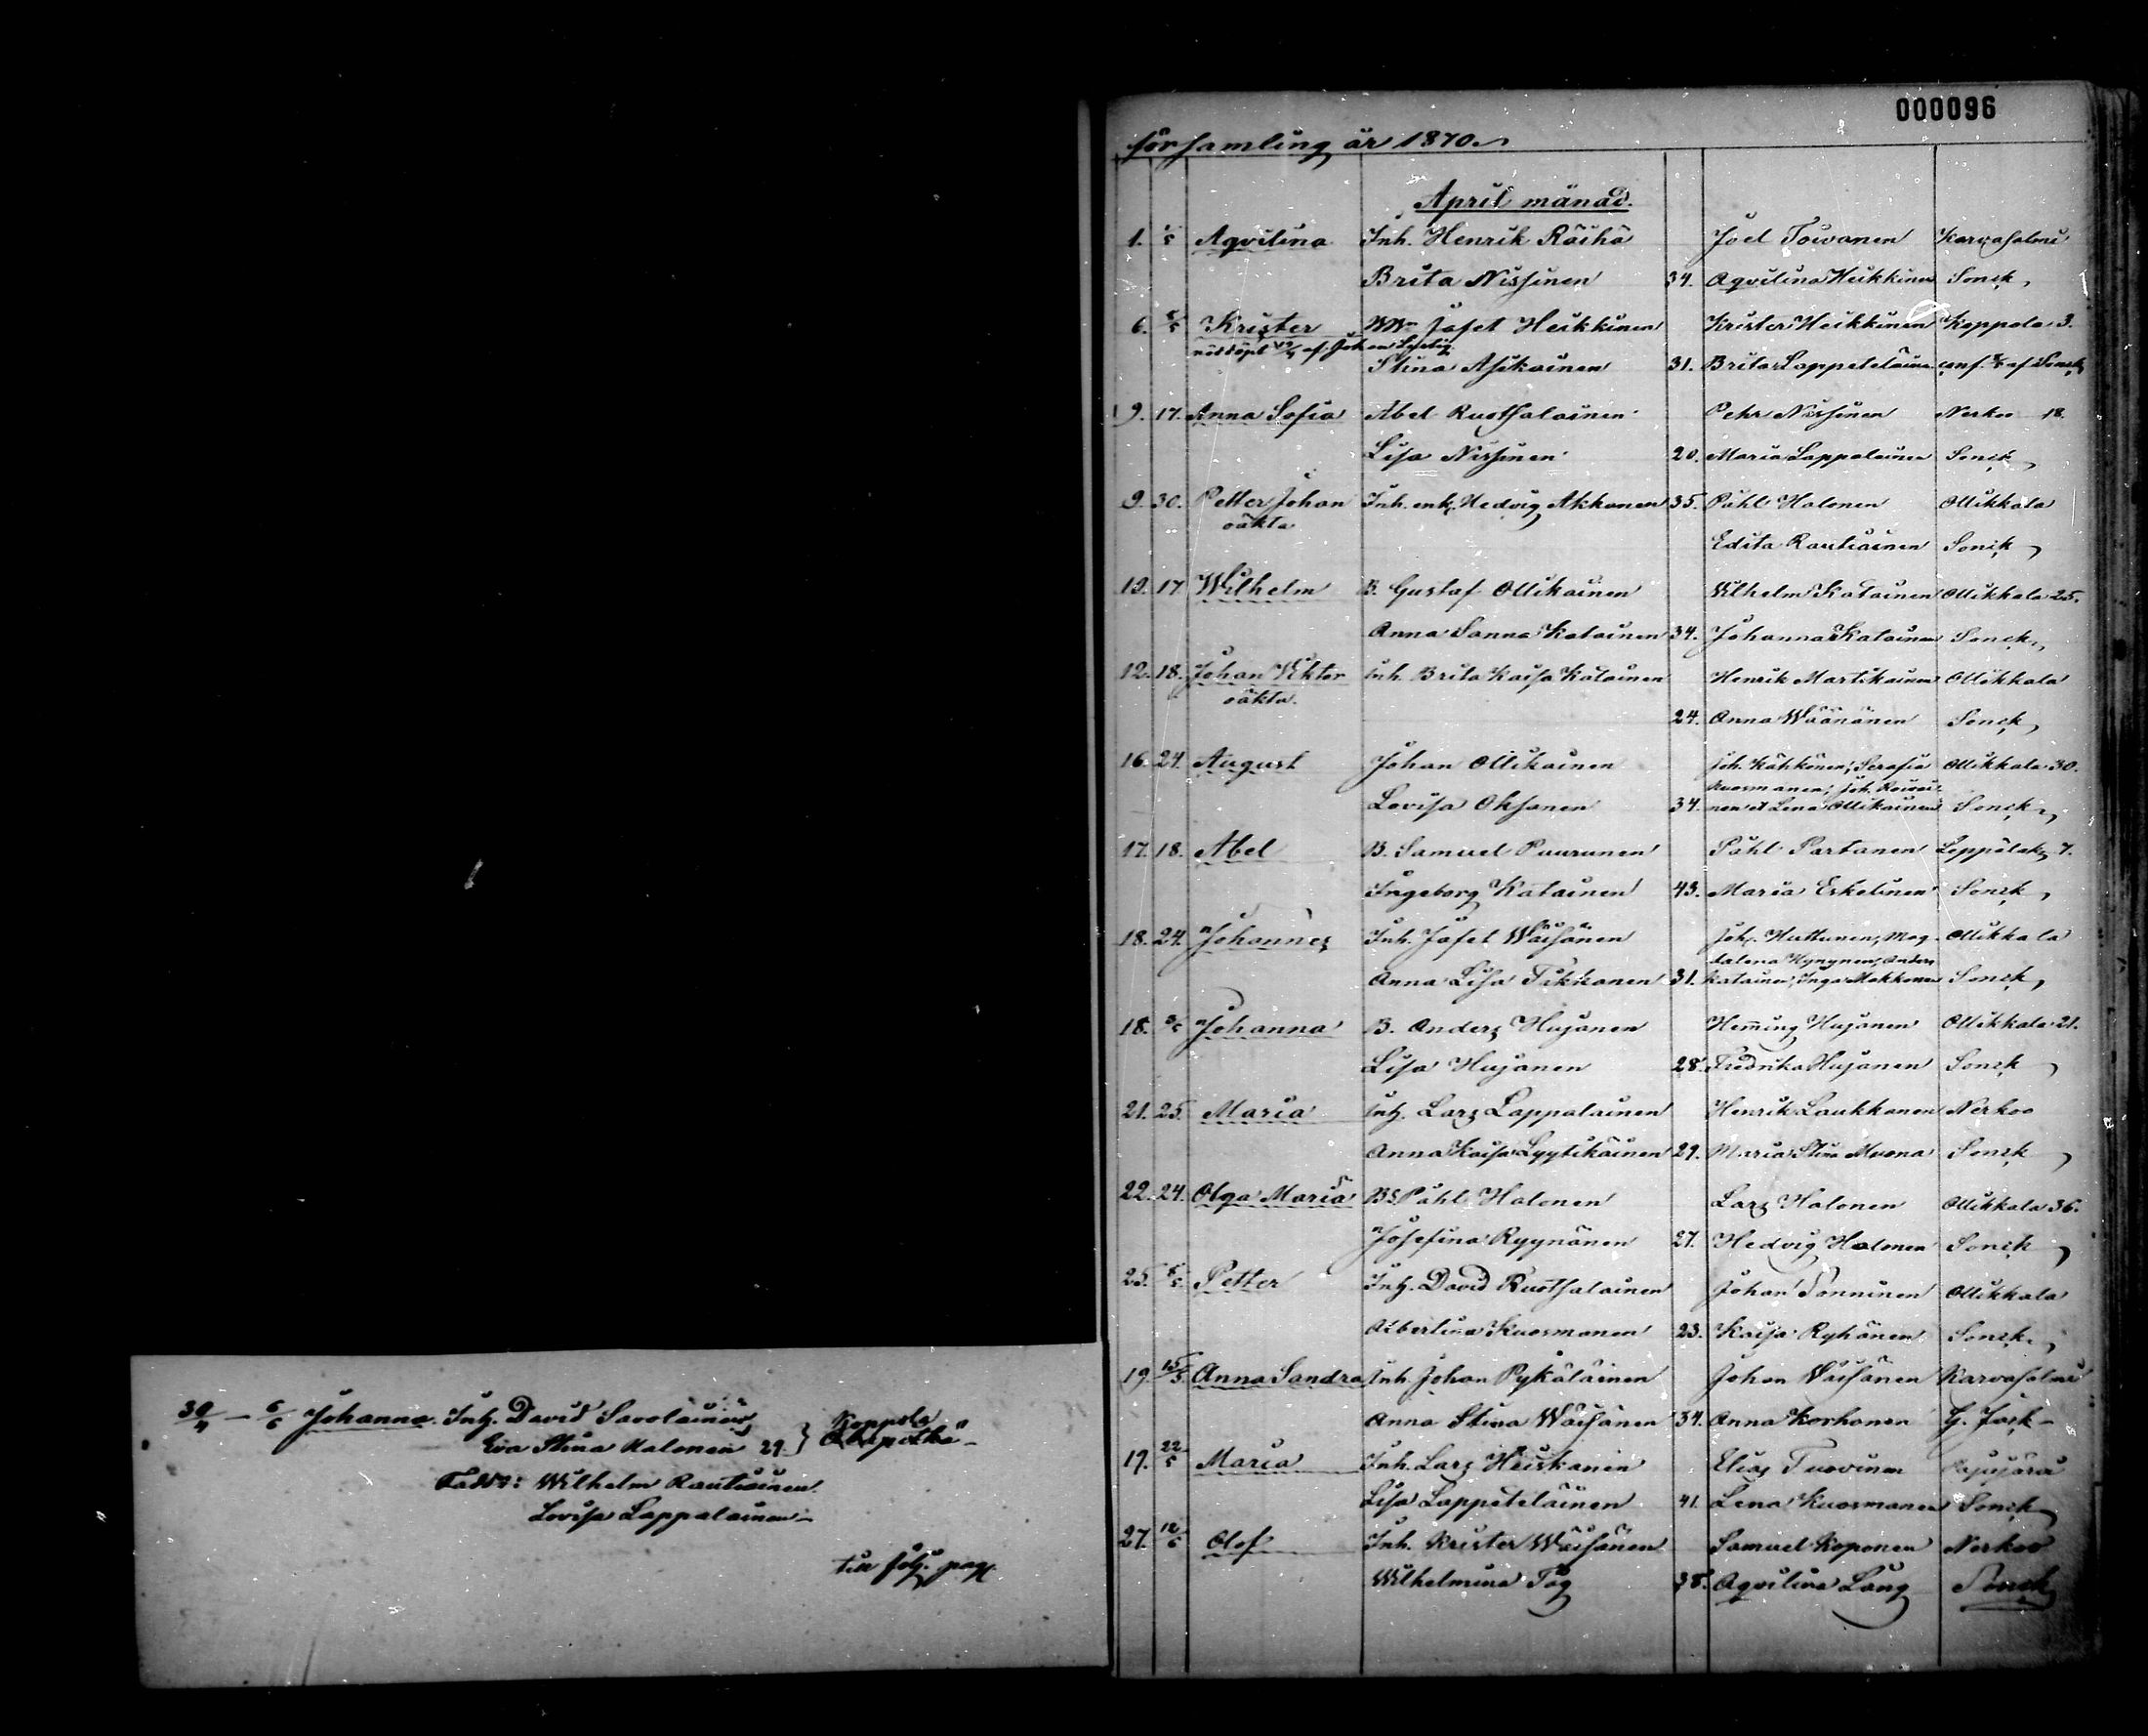 000096
församling år 1870.
April månad.
1. 1/5 Aqvilina Inh. Henrik Räihä Joel Toivanen Karvasalmi
Brita Nissinen 34. Aqvilina Heikkinen Sonck
6. 8/5 Krister Josef Heikkinen Krister Heikkinen Koppola 3.
nöddöpt af Joh
Stina Asikainen 31. Brita Lappeteläinen conf. af Sonck
9. 17. Anna Sofia Abel Ruotsalainen Pehr Nissinen Nerkoo 18.
Lisa Nissinen 20. Maria Lappalainen Sonck
9. 30. Petter Johan Inh. enk. Hedvig Akkanen 35. Påhl Halonen Ollikkala
oäkta
Edita Rautiainen Sonck
12. 17 Wilhelm B. Gustaf Ollikainen Wilhelm Katainen Ollikkala 25.
Anna Sanna Katainen 34. Johanna Katainen Sonck
12. 18. Johan Viktor Inh. Brita Kaisa Katainen Henrik Martikainen Ollikkala
oäkta.
24. Anna Wäänänen Sonck
16. 24. August Johan Ollikainen Joh. Kähkönen; Serafia Ollikkala 30.
Kuosmanen; Joh.
Lovisa Oksanen 34. nen et Lena Ollikainen Sonck
17. 18. Abel B. Samuel Puurunen Påhl Partanen Leppälaks 7.
Ingeborg Katainen 43. Maria Eskelinen Sonck
18. 24. Johannes Inh. Josef Wäisänen Joh. Huttunen, Mag- Ollikkala
dalena Hynynen, Anders
Anna Lisa Tikkanen 31. Katainen, Inga Makkonen Sonck
18. 3/5 Johanna B. Anders Hujanen Heming Hujanen Ollikkala 21.
Lisa Hujanen 28. Fredrika Hujanen Sonck
21. 25. Maria Inh. Lars Lappalainen Henrik Laukkanen Nerkoo
Anna Kaisa Lyytikäinen 29. Maria Stina Muona Sonck
22. 24. Olga Maria BS. Påhl Halonen Lars Halonen Ollikkala 36.
Josefina Ryynänen 27. Hedvig Halonen Sonck
25. 8/5 Petter Inh. David Ruotsalainen Johan Tonninen Ollikkala
Albertina Kuosmanen 23. Kaisa Ryhänen Sonck
19. 15/5 Anna Sandra Inh. Johan Pykäläinen Johan Wäisänen Karvasalmi
Anna Stina Wäisänen 34. Anna Korhonen
19. 22/5 Maria Inh. Lars Heiskanen Elias Tuovinen
Lisa Lappeteläinen 41. Lena Kuosmanen Sonck
27. 12/6 Olof Inh. Krister Wäisänen Samuel Koponen Nerkoo
Wilhelmina Tög 38. Aqvilina Lång Sonck
30/4 — 6/6 Johanna. Inh. David Savolainen Koppola
Eva Stina Halonen 29.
Faddr: Wilhelm Rautiainen
Lovisa Lappalainen
till följ. pag.